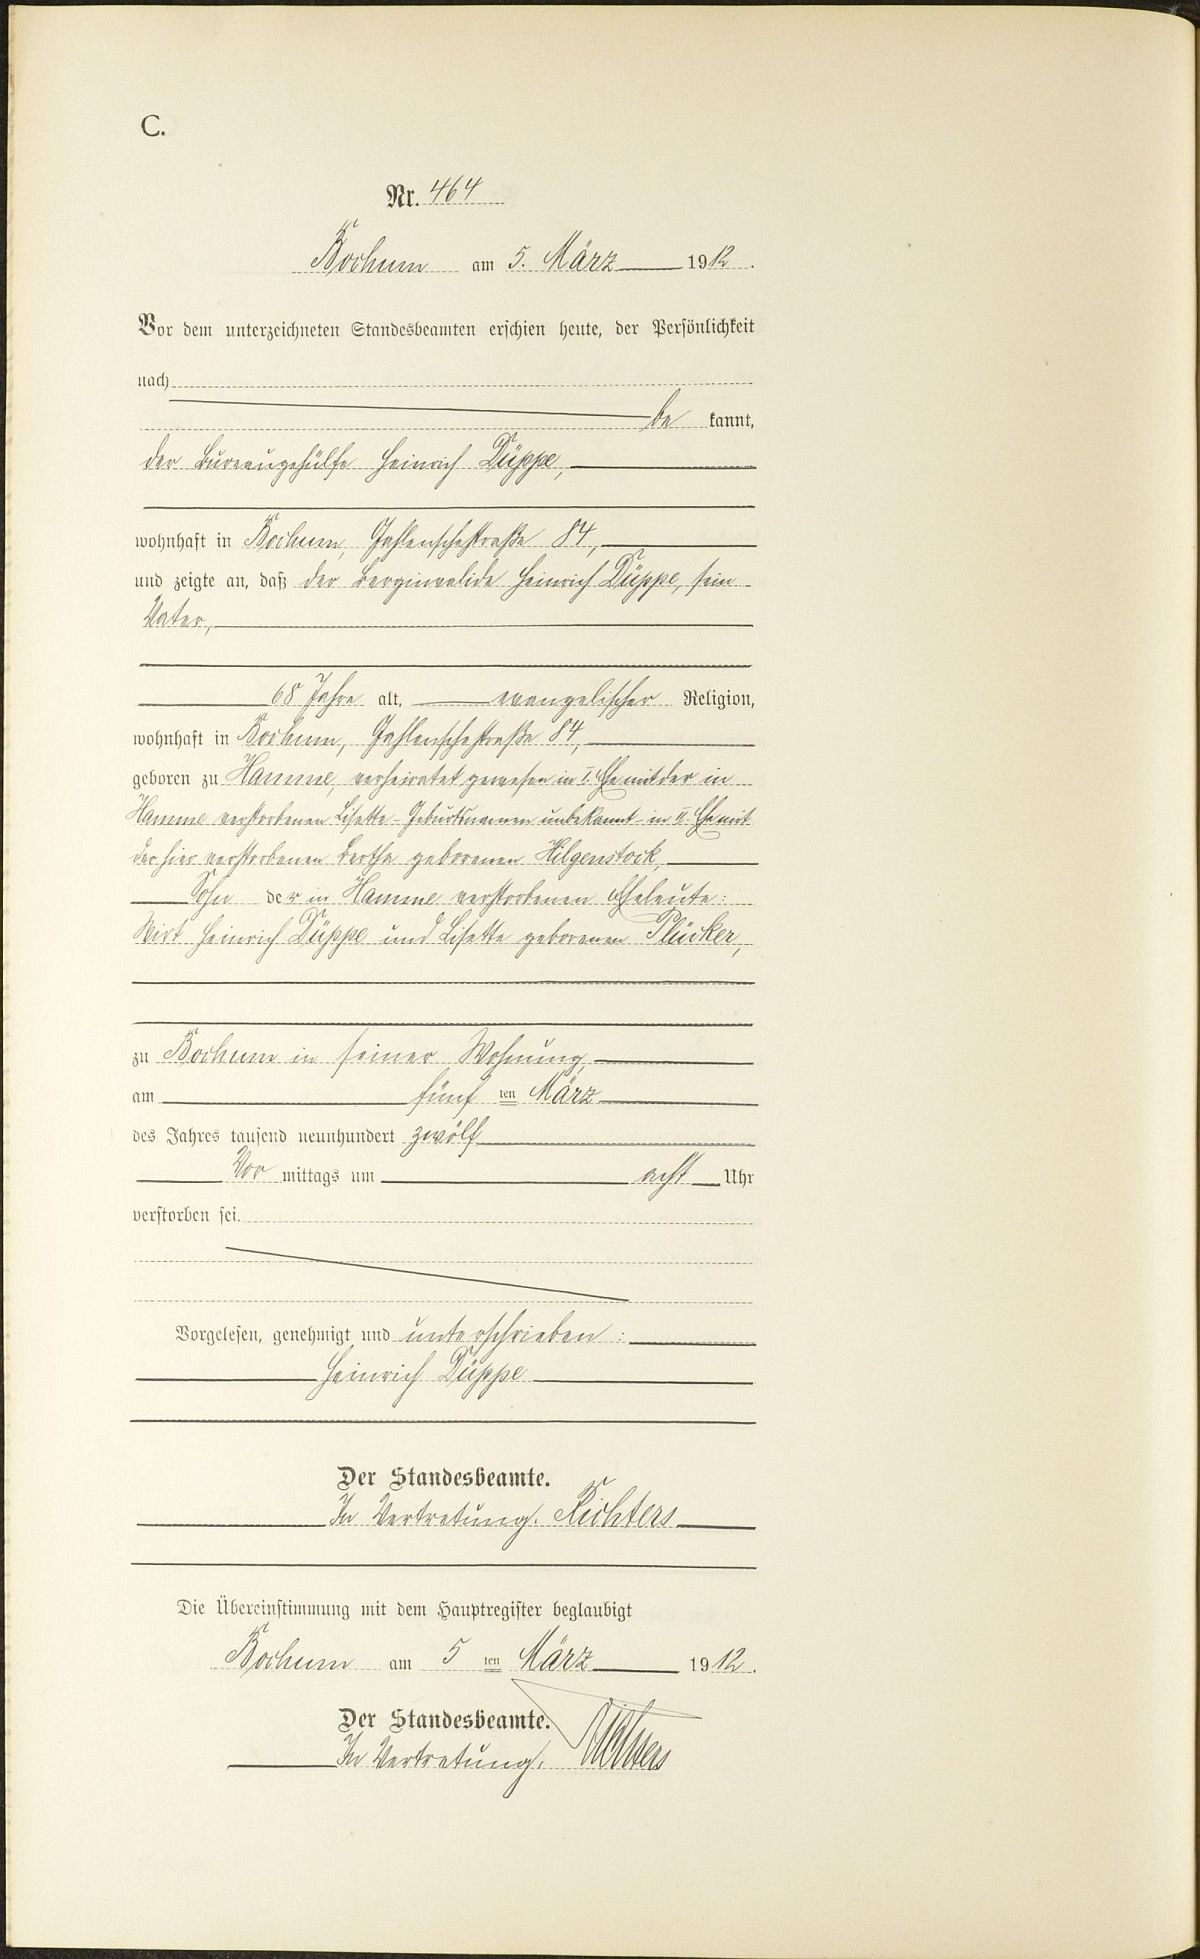 C.
Nr. 464
Bochum am 5. März 1912.
Vor dem unterzeichneten Standesbeamten erschien heute, der Persönlichkeit
nach
be kannt,
der Bureaugehülfe Heinrich Düppe,
wohnhaft in Bochum, Gahlenschestraße 84,
und zeigte an, daß der Berginvalide Heinrich Düppe, sein
Vater,
68 Jahre alt, evangelischer Religion,
wohnhaft in Bochum, Gahlenschestraße 84,
geboren zu Hamme, verheiratet gewesen in I. Ehe mit der in
Hamme verstorbenen Lisette - Geburtsnamen unbekannt - in II. Ehe mit
der hier verstorbenen Bertha geborenen Hilgenstock,
Sohn der in Hamme verstorbenen Eheleute:
Wirt Heinrich Düppe und Lisette geborenen Plücker,
zu Bochum in seiner Wohnung,
am fünf ten März
des Jahres tausend neunhundert zwölf
Vor mittags um acht Uhr
verstorben sei.
Vorgelesen, genehmigt und unterschrieben:
Heinrich Düppe
Der Standesbeamte.
In Vertretung. Richters
Die Übereinstimmung mit dem Hauptregister beglaubigt
Bochum am 5 ten März 1912.
Der Standesbeamte.
In Vertretung. Richters